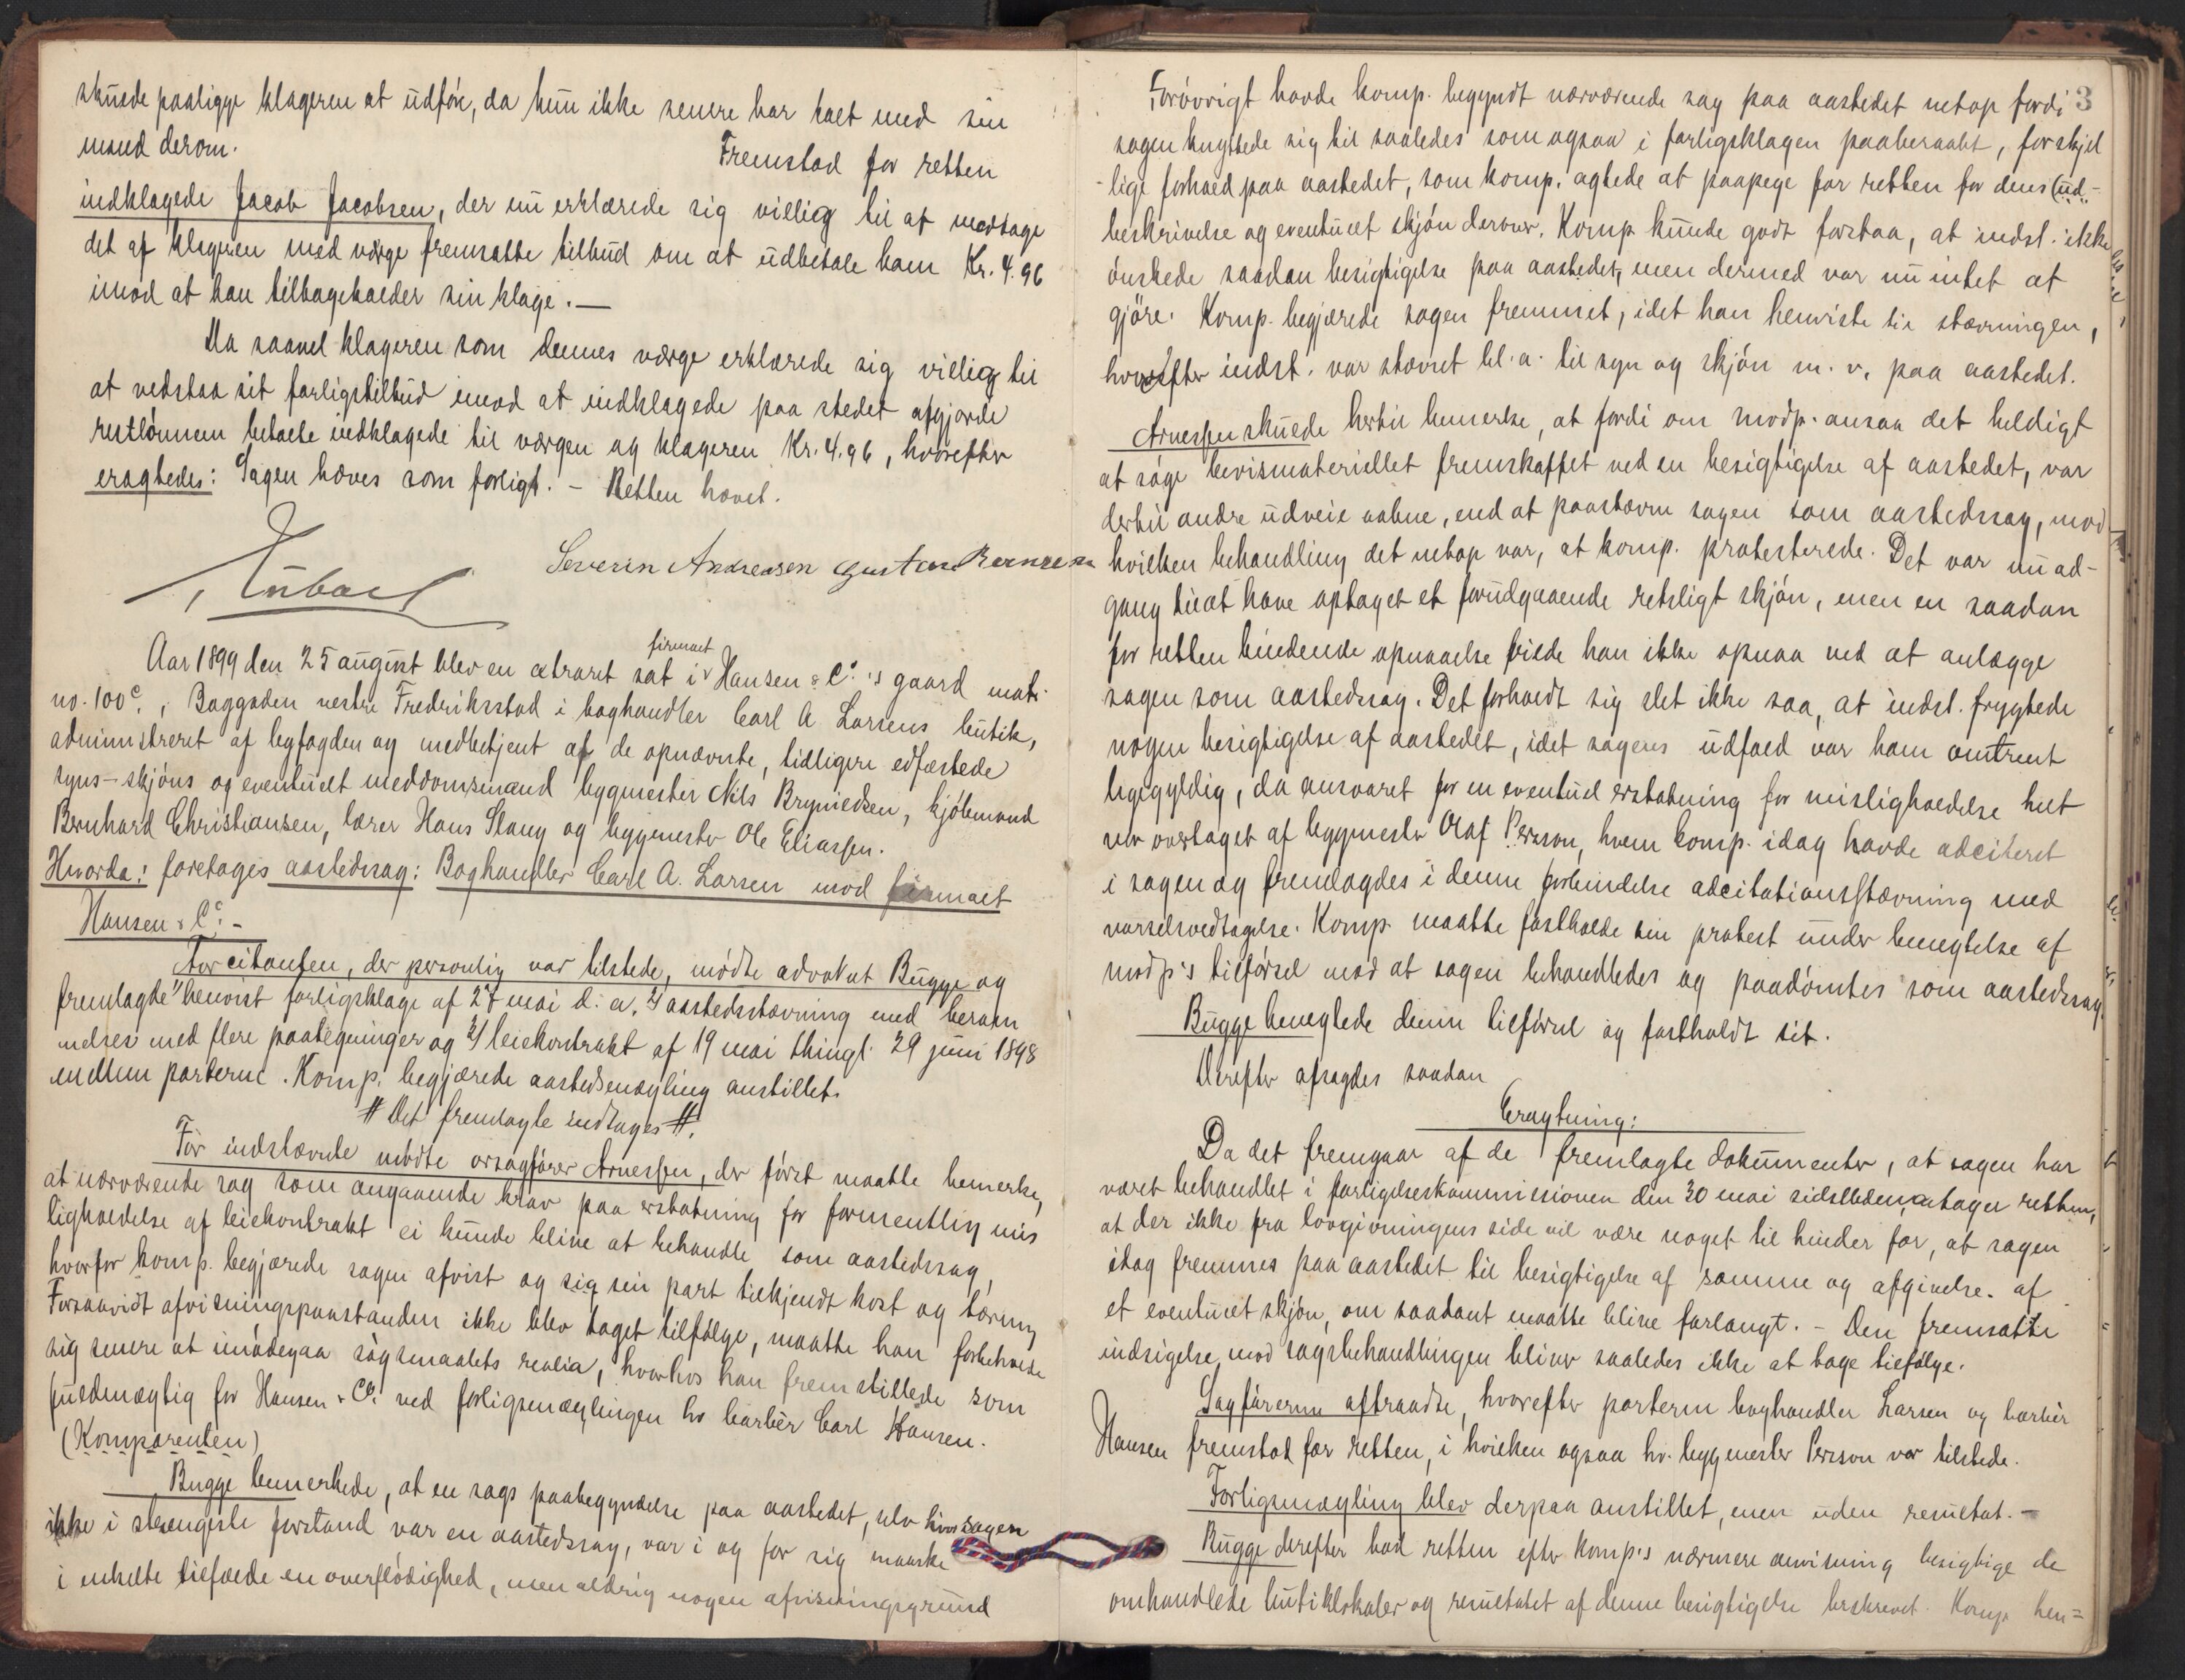 skulde paaligge klageren at udföre, da hun ikke senere har talt med sin
mand derom.
Fremstod for retten
indklagede Jacob Jacobsen, der nu erklærede sig villig til at modtage
det af klageren med værge fremsatte tilbud om at udbetale ham Kr. 4.96
imod at han tilbageholder sin klage. —
Da saavel klageren som dennes værge erklærede sig villig til
at vedstaa sit forligstilbud imod at indklagede paa stedet afgjorde
restlönnen betalte indklagede til værgen og klageren Kr. 4.96, hvorefter
eragtedes: Sagen hæves som forligt. – Retten hævet.
Severin Andreasen Gustav Berntsen
Aar 1899 den 25 august blev en extraret sat i firmaet Hansen & Co.'s gaard matr.
no. 100c., Baggaden vestre Fredriksstad i boghandler Carl A. Larsens butik,
administreret af byfogden og medbetjent af de opnævnte, tidligere edfæstede
syns- skjöns og eventuelt meddomsmænd bygmester Nils Brynildsen, kjöbmand
Bernhard Christiansen, lærer Hans Slang og bygmester Ole Eliassen.
Hvorda: foretages aastedssag: Boghandler Carl A. Larsen mod firmaet
Hansen & Co. –
For citanten, der personlig var tilstede, mödte advokat Bugge og
fremlagde 1) henvist forligsklage af 27 mai d. a. 2) aastedsstævning med beram
melser med flere paategninger og 3) leiekontrakt af 19 mai thingl. 29 juni 1898
mellem parterne. Komp. begjærede aastedsmægling anstillet.
# Det fremlagte indtages #.
For indstævnte mödte orsagförer Arnessen, der först maatte bemerke,
at nærværende sag som angaaende krav paa erstatning for formentlig mis
ligholdelse af leiekontrakt ei kunde blive at behandle som aastedssag,
hvorfor komp. begjærede sagen afvist og sig sin part tilkjendt kost og tæring
Forsaavidt afvisningspaastanden ikke blev taget tilfölge, maatte han forbeholde
sig senere at imödegaa sögsmaalets realia, hvorhos han fremstillede som
fuldmægtig for Hansen & Co. ved forligsmæglingen hr barbér Carl Hansen.
(Komparenten)
Bugge bemerkede, at en sags paabegyndelse paa aastedet, selv hvis sagen
ikke i strengeste forstand var en aastedssag, var i og for sig maaske
i enkelte tilfælde en overflödighed, men aldrig nogen afvisningsgrund
3
Foröovrigt havde komp. begyndt nærværende sag paa aastedet netop fordi
sagen knyttede sig til saaledes som ogsaa i forligsklagen paaberaabt, forskjel
-lige forhold paa aastedet, som komp. agtede at paapege for retten for dens (ud-
beskrivelse og eventuelt skjön derover. Komp. kunde godt forstaa, at indst. ikke
önskede saadan besigtigelse paa aastedet, men dermed var nu intet at
gjöre. Komp. begjærede sagen fremmet, idet han henviste til stævningen,
hvorefter indst. var stævnet bl. a. til syn og skjön m. v. paa aastedet.
Arnessen skulde hertil bemerke, at fordi om modp. ansaa det heldigt
at söge bevismateriellet fremskaffet ved en besigtigelse af aastedet, var
dertil andre udveie aabne, end at paastævne sagen som aastedssag, mod
hvilken behandling det netop var, at komp. protesterede. Det var nu ad-
gang til at have optaget et forudgaaende retsligt skjön, men en saadan
for retten bindende opnaaelse vilde han ikke opnaa ved at anlægge
sagen som aastedssag. Det forholdt sig slet ikke saa, at indst. frygtede
nogen besigtigelse af aastedet, idet sagens udfald var ham omtrent
ligegyldig, da ansvaret for en eventuel erstatning for misligholdelse helt
var overtaget af bygmester Olaf Persson, hvem komp. idag havde adciteret
i sagen og fremlagdes i denne forbindelse adcitationsstævning med
varselsvedtagelse. Komp. maatte fastholde sin protest under benegtelse af
modp's tilförsel mod at sagen behandledes og paadömtes som aastedssag.
Bugge benegtede denne tilförsel og fastholdt sit.
Derefter afsagdes saadan
Eragtning:
Da det fremgaar af de fremlagte dokumenter, at sagen har
været behandlet i forligelseskommissionen den 30 mai sidstleden, antager retten,
at der ikke fra lovgivningens side vil være noget til hinder for, at sagen
idag fremmes paa aastedet til besigtigelse af samme og afgivelse af
et eventuelt skjön, om saadant maatte blive forlangt. – Den fremsatte
indsigelse mod sagsbehandlingen bliver saaledes ikke at tage tilfölge.
Sagförerne aftraadte, hvorefter parterne boghandler Larsen og barbér
Hansen fremstod for retten, i hvilken ogsaa hr. bygmester Persson var tilstede.
Forligsmægling blev derpaa anstillet, men uden resultat. –
Bugge derefter bad retten efter komp's nærmere anvisning besigtige de
omhandlede butiklokaler og resultatet af denne besigtigelse beskrevet. Komp. hen=